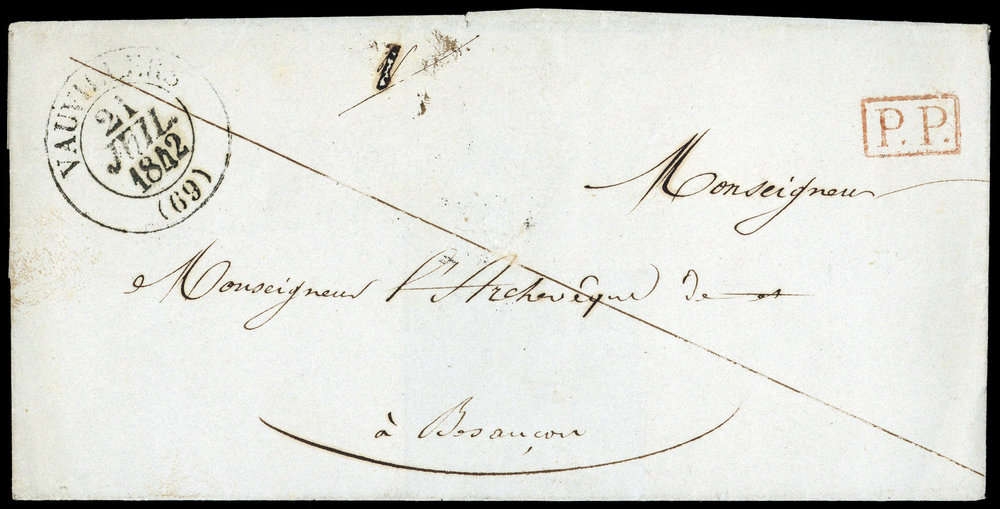 VAUVILLERS
21
JUIL.
1842
(69)
P.P.
Monseigneur
Monseigneur l'Archevêque de
à Besançon